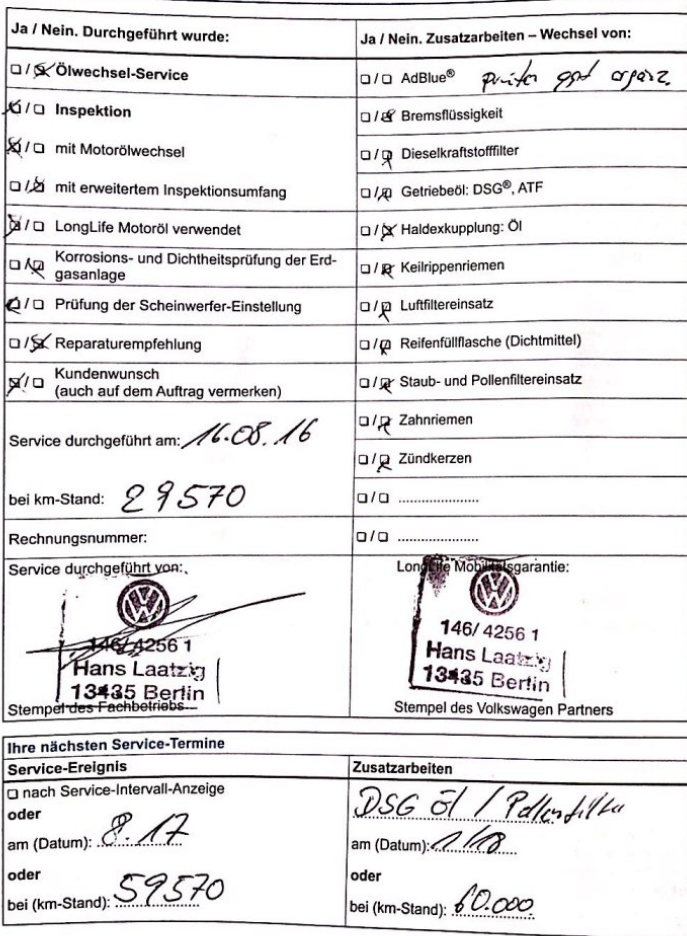 Ja / Nein. Durchgeführt wurde:
□ / ☒ Ölwechsel-Service
☒ / □ Inspektion
☒ / □ mit Motorölwechsel
□ / ☒ mit erweitertem Inspektionsumfang
☒ / □ LongLife Motoröl verwendet
□ / ☒ Korrosions- und Dichtheitsprüfung der Erd-
gasanlage
☒ / □ Prüfung der Scheinwerfer-Einstellung
□ / ☒ Reparaturempfehlung
☒ / □ Kundenwunsch
(auch auf dem Auftrag vermerken)
Service durchgeführt am: 16.08.16
bei km-Stand: 29570
Rechnungsnummer:
Service durchgeführt von:
VW
146/ 4256 1
Hans Laatzig
13435 Berlin
Stempel des Fachbetriebs
Ja / Nein. Zusatzarbeiten – Wechsel von:
□ / □ AdBlue®
□ / ☒ Bremsflüssigkeit
□ / ☒ Dieselkraftstofffilter
□ / ☒ Getriebeöl: DSG®, ATF
□ / ☒ Haldexkupplung: Öl
□ / ☒ Keilrippenriemen
□ / ☒ Luftfiltereinsatz
□ / ☒ Reifenfüllflasche (Dichtmittel)
□ / ☒ Staub- und Pollenfiltereinsatz
□ / ☒ Zahnriemen
□ / ☒ Zündkerzen
□ / □ .....................
□ / □ .....................
LongLife Mobilitätsgarantie:
VW
146/ 4256 1
Hans Laatzig
13435 Berlin
Stempel des Volkswagen Partners
Ihre nächsten Service-Termine
Service-Ereignis
□ nach Service-Intervall-Anzeige
oder
am (Datum): 8.17
oder
bei (km-Stand): 59570
Zusatzarbeiten
DSG Öl / Pollenfilter
am (Datum): 1/18
oder
bei (km-Stand): 60.000